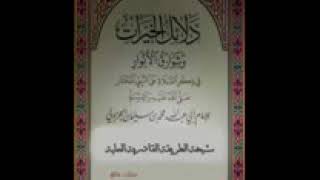 دلائل الخيرات
وشوارق الأنوار
في ذكر الصلاة على النبي المختار
صلى الله عليه وسلم
للإمام أبي عبد الله محمد بن سليمان الجزولي
الطريقة القادرية العلية